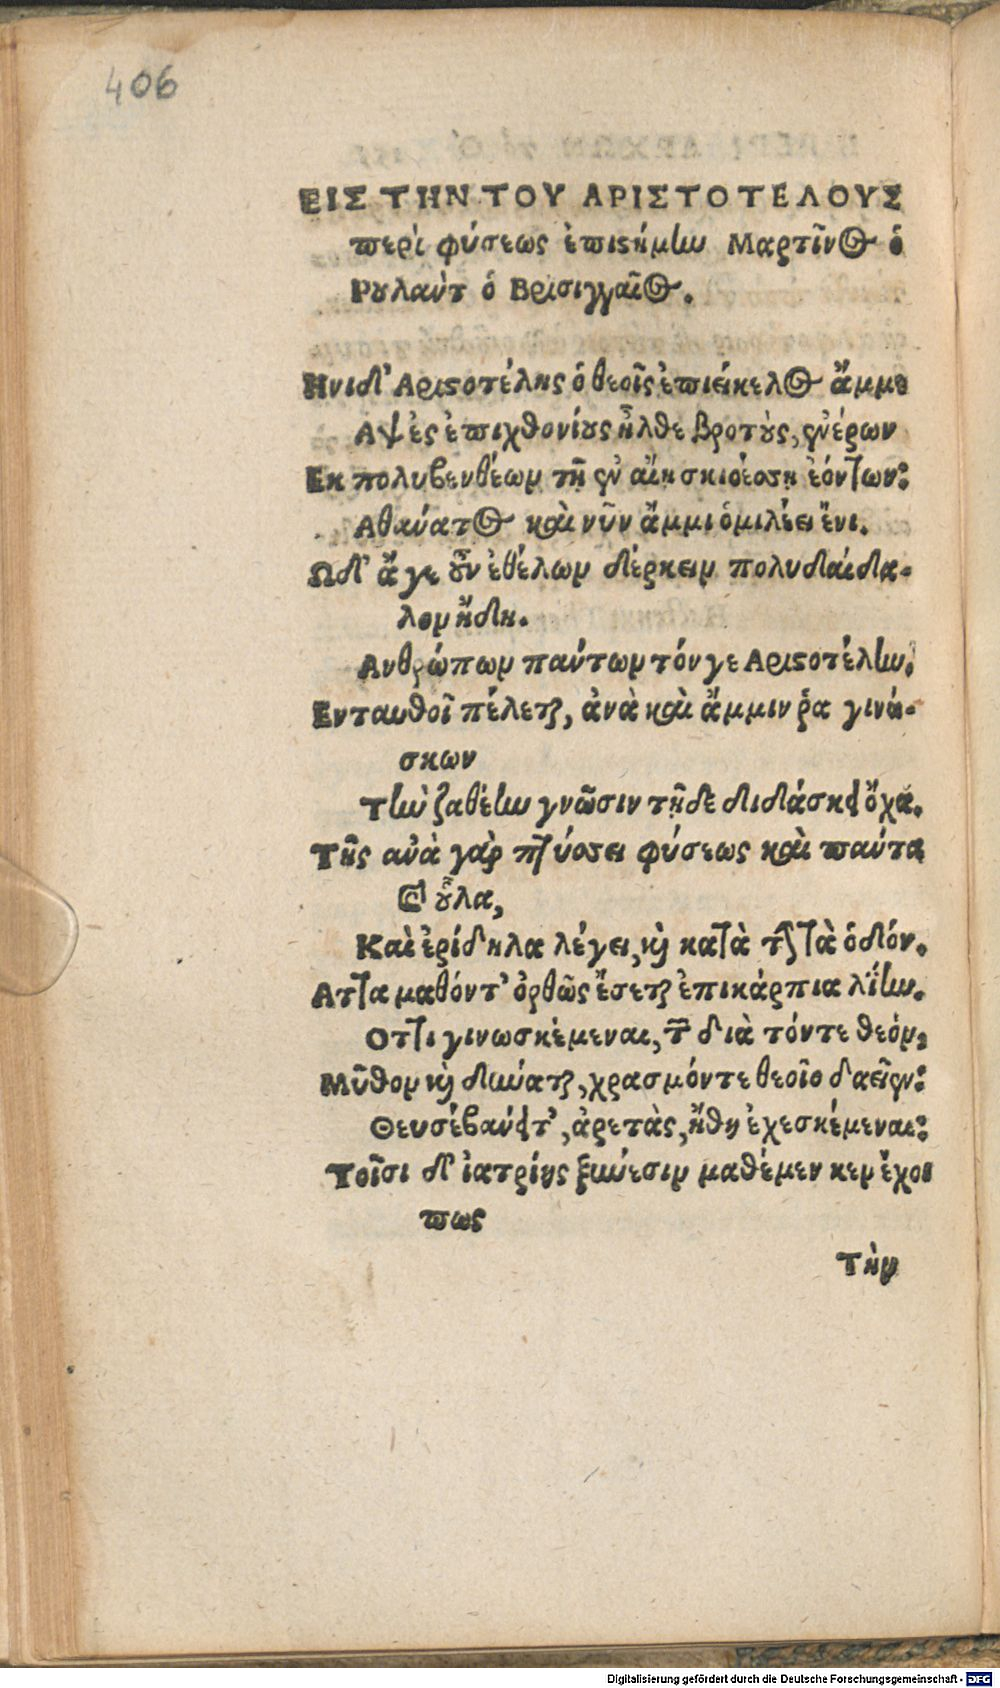 406
ΕΙΣ ΤΗΝ ΤΟΥ ΑΡΙΣΤΟΤΕΛΟΥΣ
περὶ φύσεως ἐπιϛήμην Μαρτῖνος ὁ
Ρουλαὺτ ὁ Βρισιγγαῖος.
Ηνιδ' Αριϛοτέλης ὁ θεοῖς ἐπιείκελος ἄμμε
Αψ ἐς ἐπιχθονίους ἦλθε βροτοὺς, ἐνέρων
Εκ πολυβενθέων τῇ ἐν αἴῃ σκιοέσσῃ ἐόντων:
Αθανατος καὶ νῦν ἄμμι ὁμιλέει ἔνι.
Ωδ' ἄγε οὖν ἐθέλων δέρκειν πολυδαίδα-
λον ἤδη.
Ανθρώπων πάντων τόνγε Αριϛοτέλην.
Ενταυθοῖ πέλεται, ἀνὰ καὶ ἄμμιν ῥα γινώ-
σκων
Τὴν ζαθέην γνῶσιν τῇδε διδάσκει ὄχα.
Τῆς ἀνὰ γὰρ πτύσσει φύσεως καὶ πάντα
οὖλα,
Καὶ ἐρίδηλα λέγει, καὶ κατὰ ὁδόν.
Ατta μαθόντ' ὀρθῶς ἔσεται ἐπικάρπια λΐην.
Οττι γινωσκέμεναι, διὰ τόντε θεόν,
Μῦθον καὶ δύναται, χρασμόντε θεοῖο δαεῖεν:
Θευσέβαν, ἀρετὰς, ἤθη ἐχεσκέμεναι:
Τοῖσι δ' ἰατρίης ξυνεσιν μαθέμεν κεν ἔχοι
πως
Τὴν
Digitalisierung gefördert durch die Deutsche Forschungsgemeinschaft - DFG